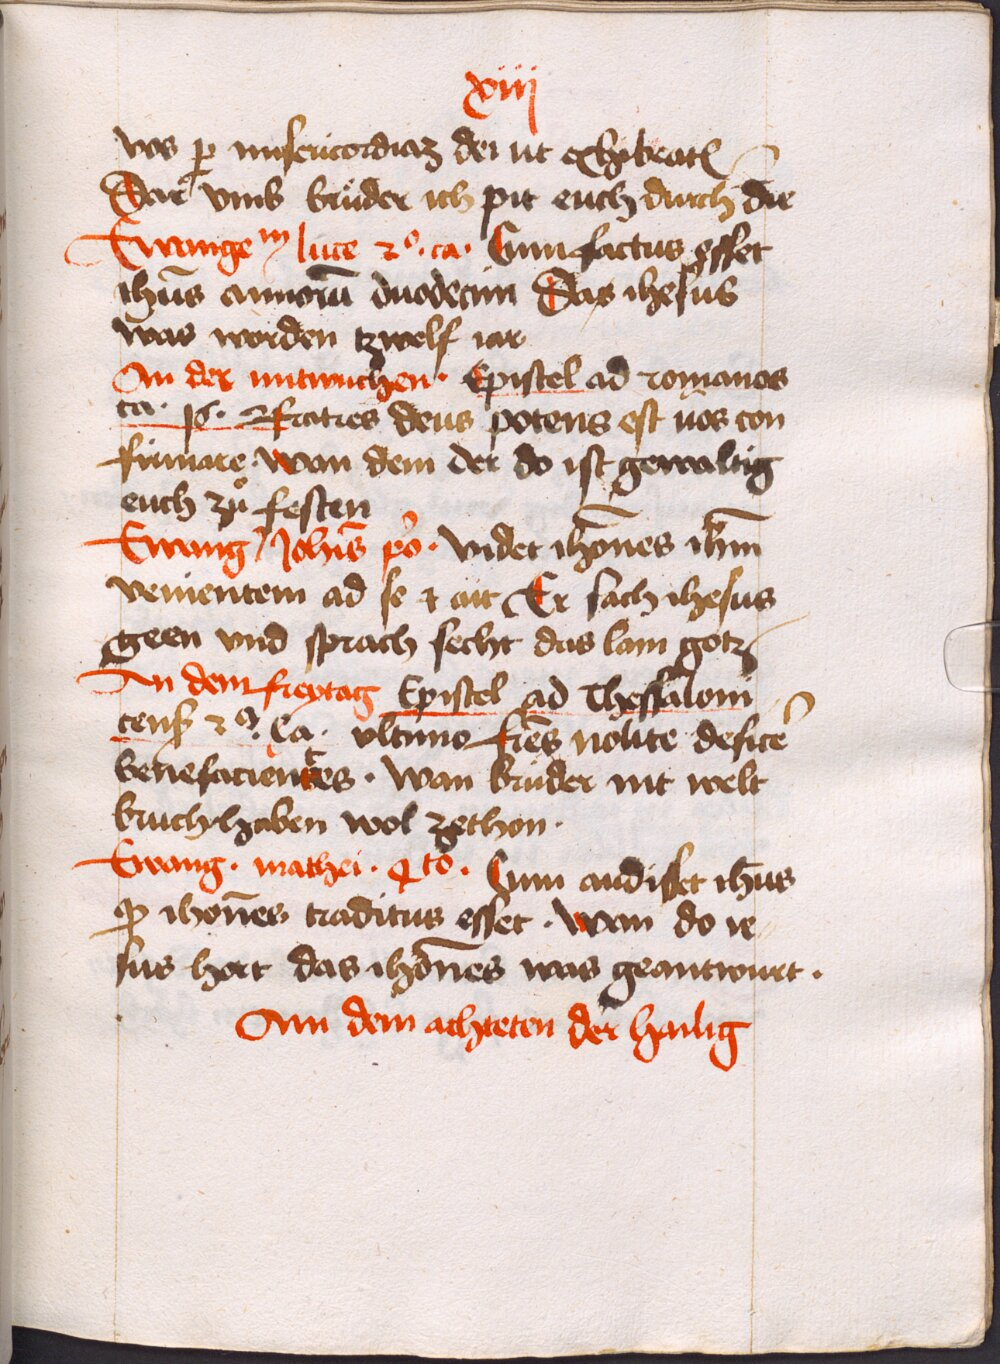 xiij
vos ꝑ misericordiaʒ dei ut exhibeatꝭ
Dar vmb brůder ich pit euch durch die
Ewangeᵐ luce 2º. ca. Cum factus esset
ihūs annorū duodecim Das ihesus
was worden tzwelf iar
An der mitwuchen. Epistel ad romanos
ca. 16. fratres deus potens est uos con
firmare. Wan dem der do ist gewaltig
euch zů festen
Ewang Johīs pº. videt ihōnes ihm̄
venientem ad se ⁊ ait Er sach ihesus
geen vnd sprach secht das lam gotz
An dem freytag Epistel ad Thessaloni
cenſ 2ª. Ca. vltimo fr̄es nolite deficē
benefacientes. Wan brůder nit welt
bruch haben wol zethon.
Ewang. mathei. 4to. Cum audisset ihūs
ꝙ ihōnes traditus esset. Wan do ie
sus hort das ihōnes was geantwurt.
Am dem achteten der hailig